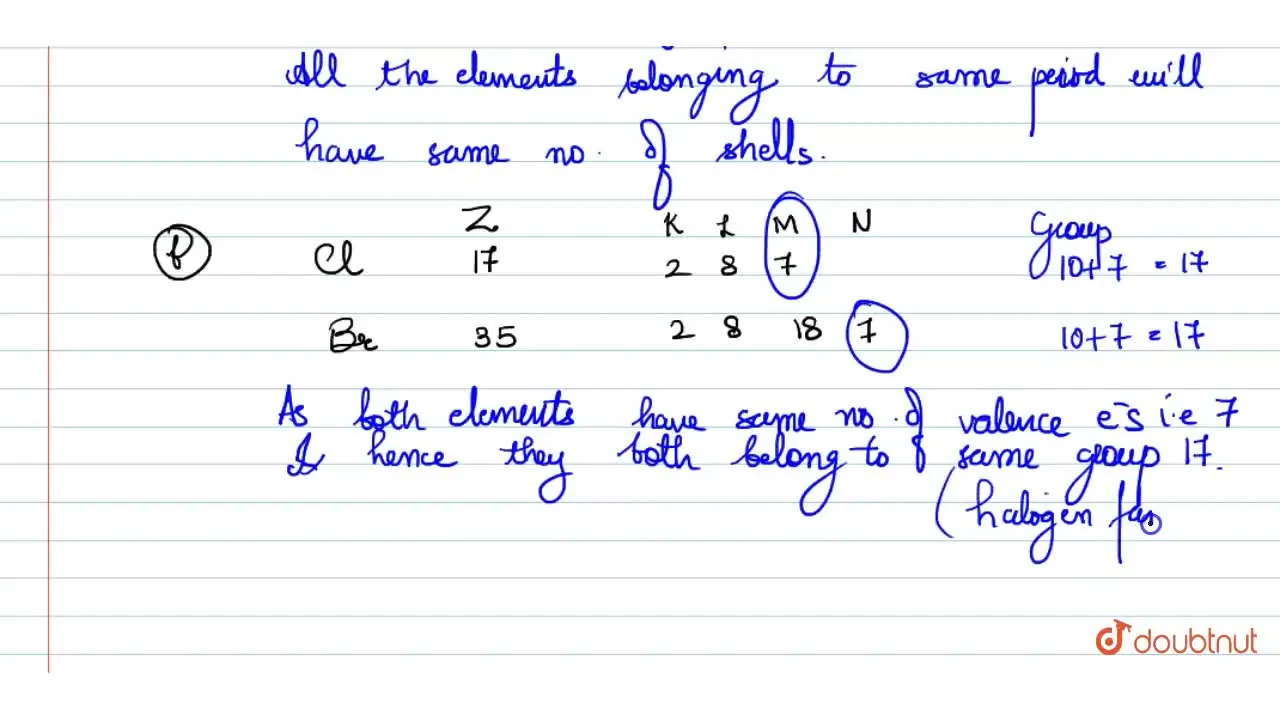 All the elements belonging to same period will
have same no. of shells.
Z K L M N Group
P Cl 17 2 8 7 10+7 = 17
Br 35 2 8 18 7 10+7 = 17
As both elements have same no. of valence e⁻s i.e 7
& hence they both belong to same group 17.
(halogen fam
doubtnut